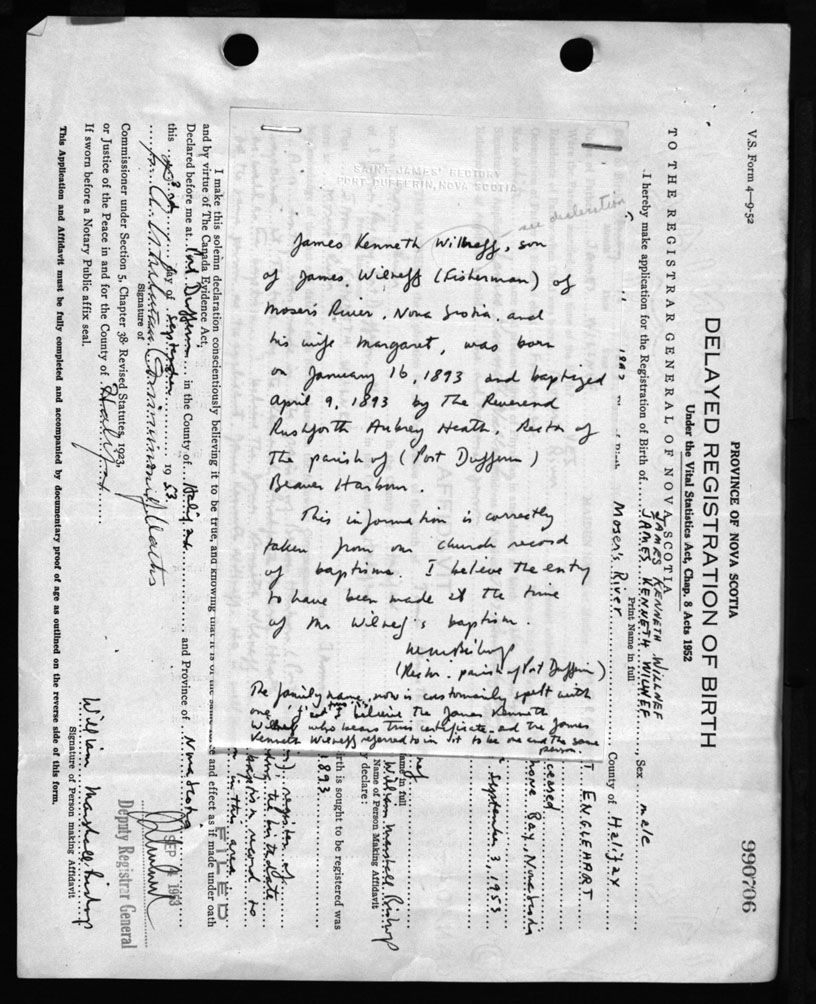 V.S. Form 4—9-52
990706
PROVINCE OF NOVA SCOTIA
DELAYED REGISTRATION OF BIRTH
Under the Vital Statistics Act, Chap. 8 Acts 1952
TO THE REGISTRAR GENERAL OF NOVA SCOTIA
JAMES KENNETH WILNEF
I hereby make application for the Registration of Birth of JAMES KENNETH WILNEF, Sex male
Print Name in full
Moser's River County of Halifax
SAINT JAMES' RECTORY
PORT DUFFERIN, NOVA SCOTIA
see declaration
James Kenneth Wilneff, son
of James Wilneff (Fisherman) of
Moser's River, Nova Scotia, and
his wife Margaret, was born
on January 16, 1893 and baptized
April 9, 1893 by the Reverend
Rushforth Aubrey Heath, Rector of
the parish of (Port Dufferin)
Beaver Harbour.
This information is correctly
taken from our church record
of baptisms. I believe the entry
to have been made at the time
of Mr Wilnef's baptism.
(Rector, parish of Port Dufferin)
The family name now is customarily spelt with
one "f" and I believe the James Kenneth
Wilnef who bears this certificate and the James
Kenneth Wilneff referred to in it to be one and the same
person.
T ENGLEHART
September 3, 1953
Name in full
William Marshall Bishop
Name of Person Making Affidavit
declare:
birth is sought to be registered was
1893
register of
birth date
baptism record to
in this area
I make this solemn declaration conscientiously believing it to be true, and knowing that it is of the same force and effect as if made under oath
and by virtue of The Canada Evidence Act.
Declared before me at Port Dufferin in the County of Halifax and Province of Nova Scotia
this 3rd day of September 1953
Signature of
Commissioner under Section 5, Chapter 38 Revised Statutes, 1923,
or Justice of the Peace in and for the County of Halifax
If sworn before a Notary Public affix seal.
William Marshall Bishop
Signature of Person making Affidavit
FILED
SEP 14 1953
Deputy Registrar General
This Application and Affidavit must be fully completed and accompanied by documentary proof of age as outlined on the reverse side of this form.